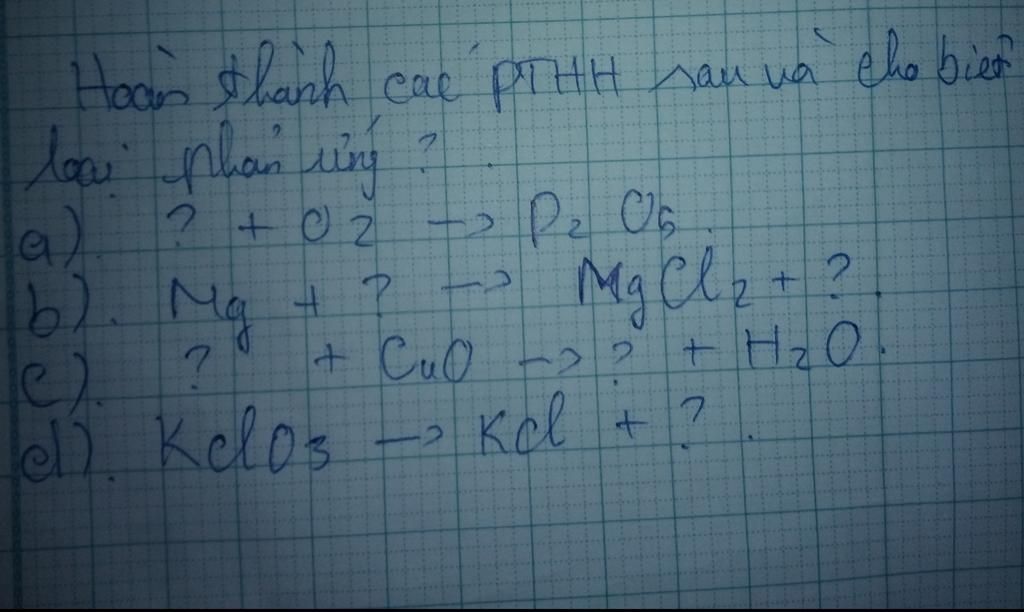 Hoàn thành các PTHH sau và cho biết
loại phản ứng ?
a). ? + O2 → P2 O5.
b). Mg + ? → MgCl2 + ?.
c). ? + CuO → ? + H2O.
d). KClO3 → KCl + ?.